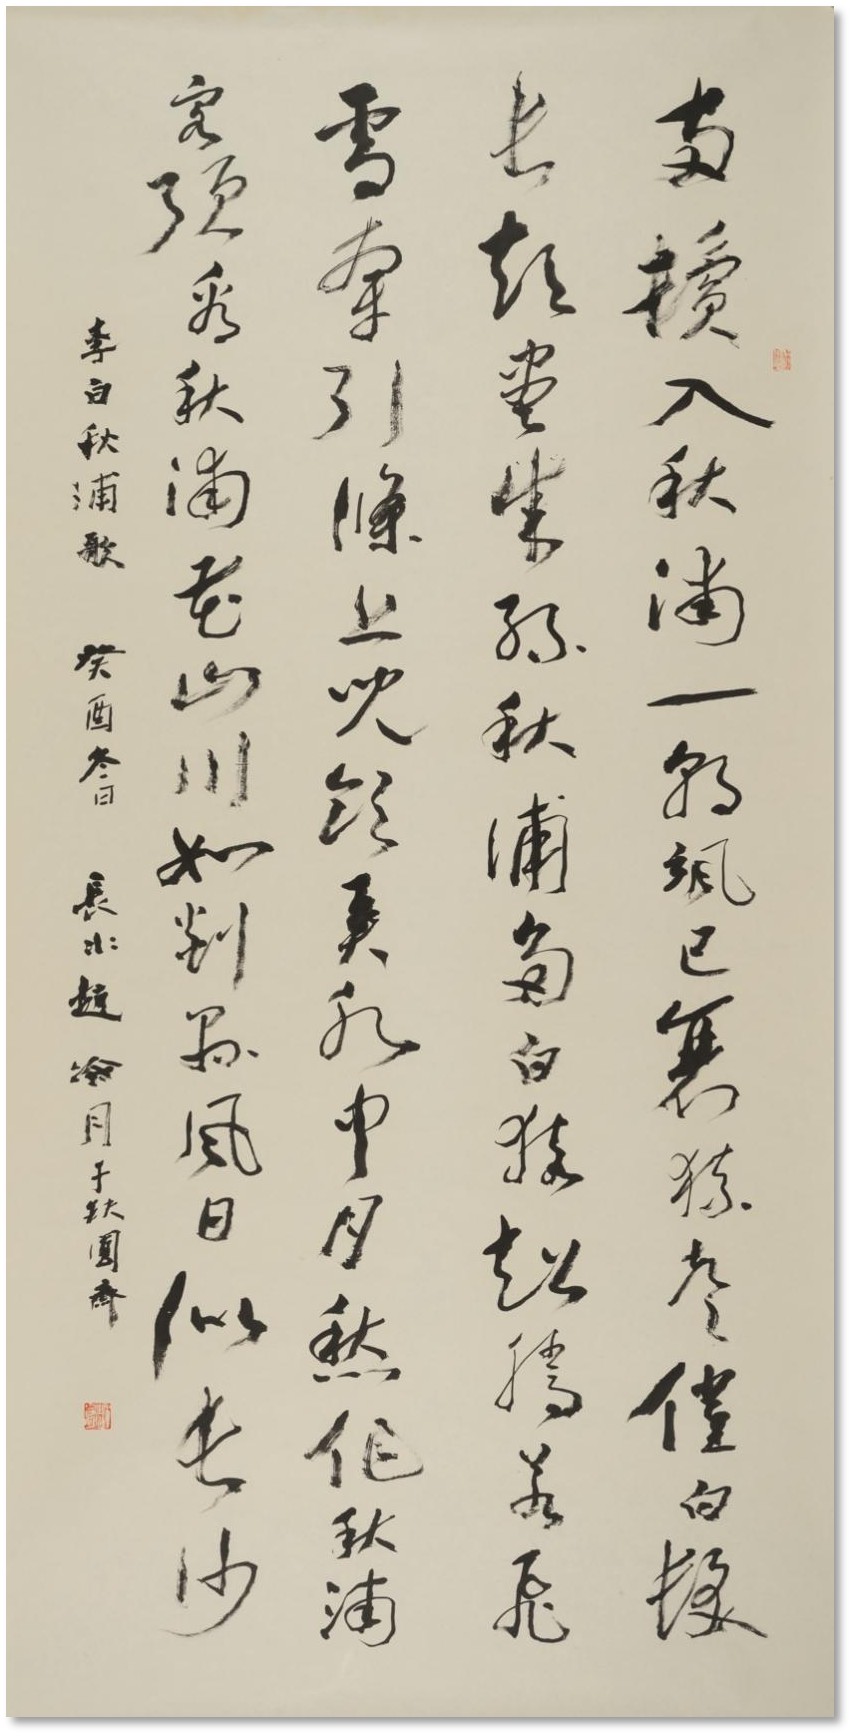 兩鬢入秋浦一朝颯已衰猿聲催白髮
長短盡成絲秋浦多白猿超騰若飛
雪牽引條上兒飲弄水中月愁作秋浦
客強看秋浦花山川如剡縣風日似長沙
李白秋浦歌 癸酉冬日 長水趙冷月于缺圓齋